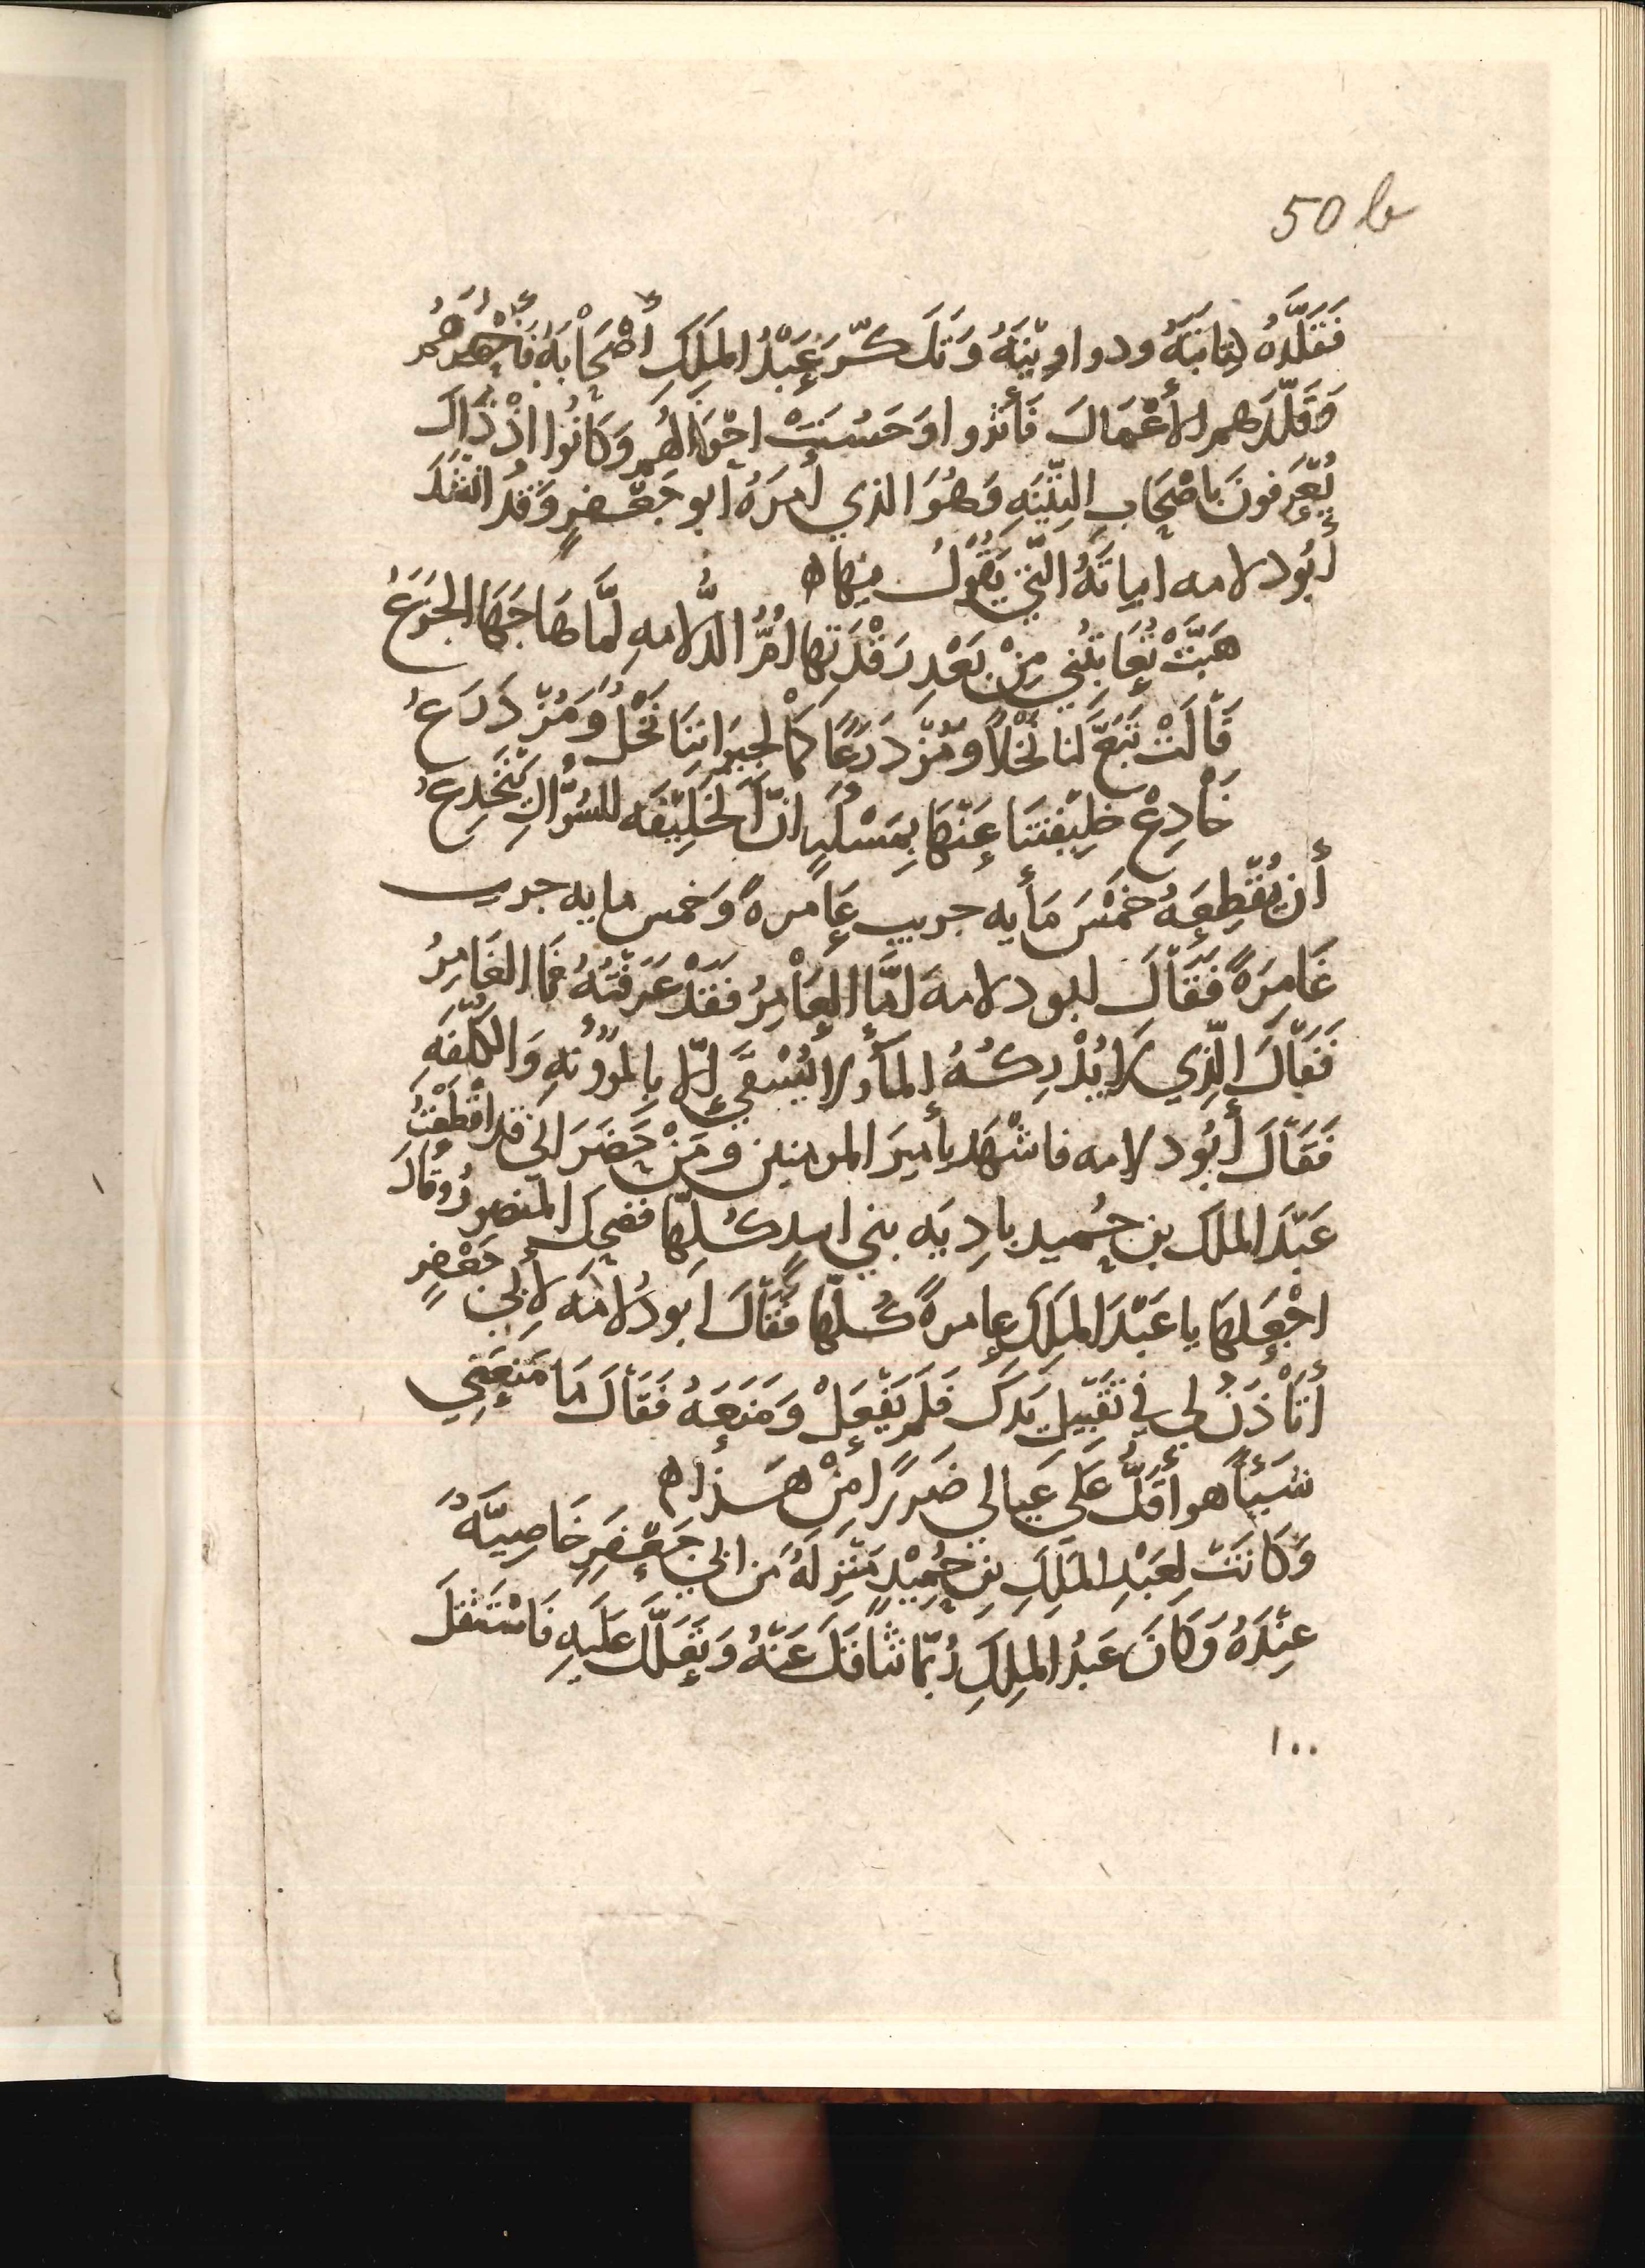 50 b
فَقَلَّدَهُ كِتابَتَهُ ودواوِيْنَهُ وَتَذَكَّرَ عَبْدُ المَلِكِ أَصْحَابَهُ فَأَحْضَرَهُمْ
وَقَلَّدَهم الأعْمَالَ فَأثْروا وَحَسُنَتْ احْوَالُهم وَكَانُوا اذْ ذَاكَ
يُعْرَفونَ باصْحَابِ التِّيْنَهِ وَهُوَ الذي أمَرَهُ ابو جَعْفرٍ وَقَدْ انْشَدَهُ
أبُو دلامه ابياتَهُ الَّتي يَقُوْلُ فيها ه
هَبَّتْ تُعَاتِبُني مِنْ بَعْدِ رَقْدَتِها امُّ الدُّلامهِ لَمَّا هَاجَهَا الجَزَعُ
قَالَتْ تَبَغَّ لَنا نَخْلاً وَمُزْدَرَعًا كَمَا لجِيرَانِنَا نَخْلٌ وَمُزْدَرَعُ
خَادِعْ خلِيْفَتَنَا عَنْهَا بِمَسْألَهٍ انَّ الخَلِيْفَه للسُّؤَّالِ يَنْخَدِعُ
أن يُقْطِعَهُ خَمْسَ مَأيه جريب عَامرهً وَخمس مايه جريب
غَامِرَهً فَقَالَ ابو دلامهَ امَّا العَامِرُ فَقَدْ عَرَفْتُهُ فمَا الغَامِرُ
فَقَالَ الَّذِي لَا يُدْرِكُهُ المَأُ ولا يُسْقَى إلّا بِالمَؤُونَهِ وَالكُلْفَهِ
فَقَالَ أبُو دلامه فاشْهَد يأميرَ المومنين وَمَنْ حَضَرَ انى قد اقْطَعْتُ
عَبْدَ الملك بن حُمَيد بادِيَه بني اسدٍ كُلَّها فضحِكَ المنصورُ وقَالَ
اجْعَلهَا يا عَبْدَ المَلِكَ عامرهً كُلّهَا فَقَالَ ابو دُلامَه لأبى جَعْفرٍ
أتَأْذَنُ لي في تَقْبِيْلِ يَدِكَ فَلَم يَفْعَلْ وَمَنَعَهُ فَقَالَ مَا مَنَعْتَنِي
شَيْأً هو أقَلُّ عَلَى عيالي ضَررًا مِنْ هَـذا ه
وَكَانَتْ لِعَبْدِ المَلِكِ بنِ حُمِيْدٍ مَنْزِلَهٌ من ابي جَعْفَرٍ خَاصِيَّهٌ
عِنْدَهُ وَكَانَ عَبْدُ المَلِكِ رُبَّمَا تَثَاقَلَ عَنْهُ وَتَعَلَّلَ عَلَيهِ فَاسْتَثْقَلَ
١٠٠